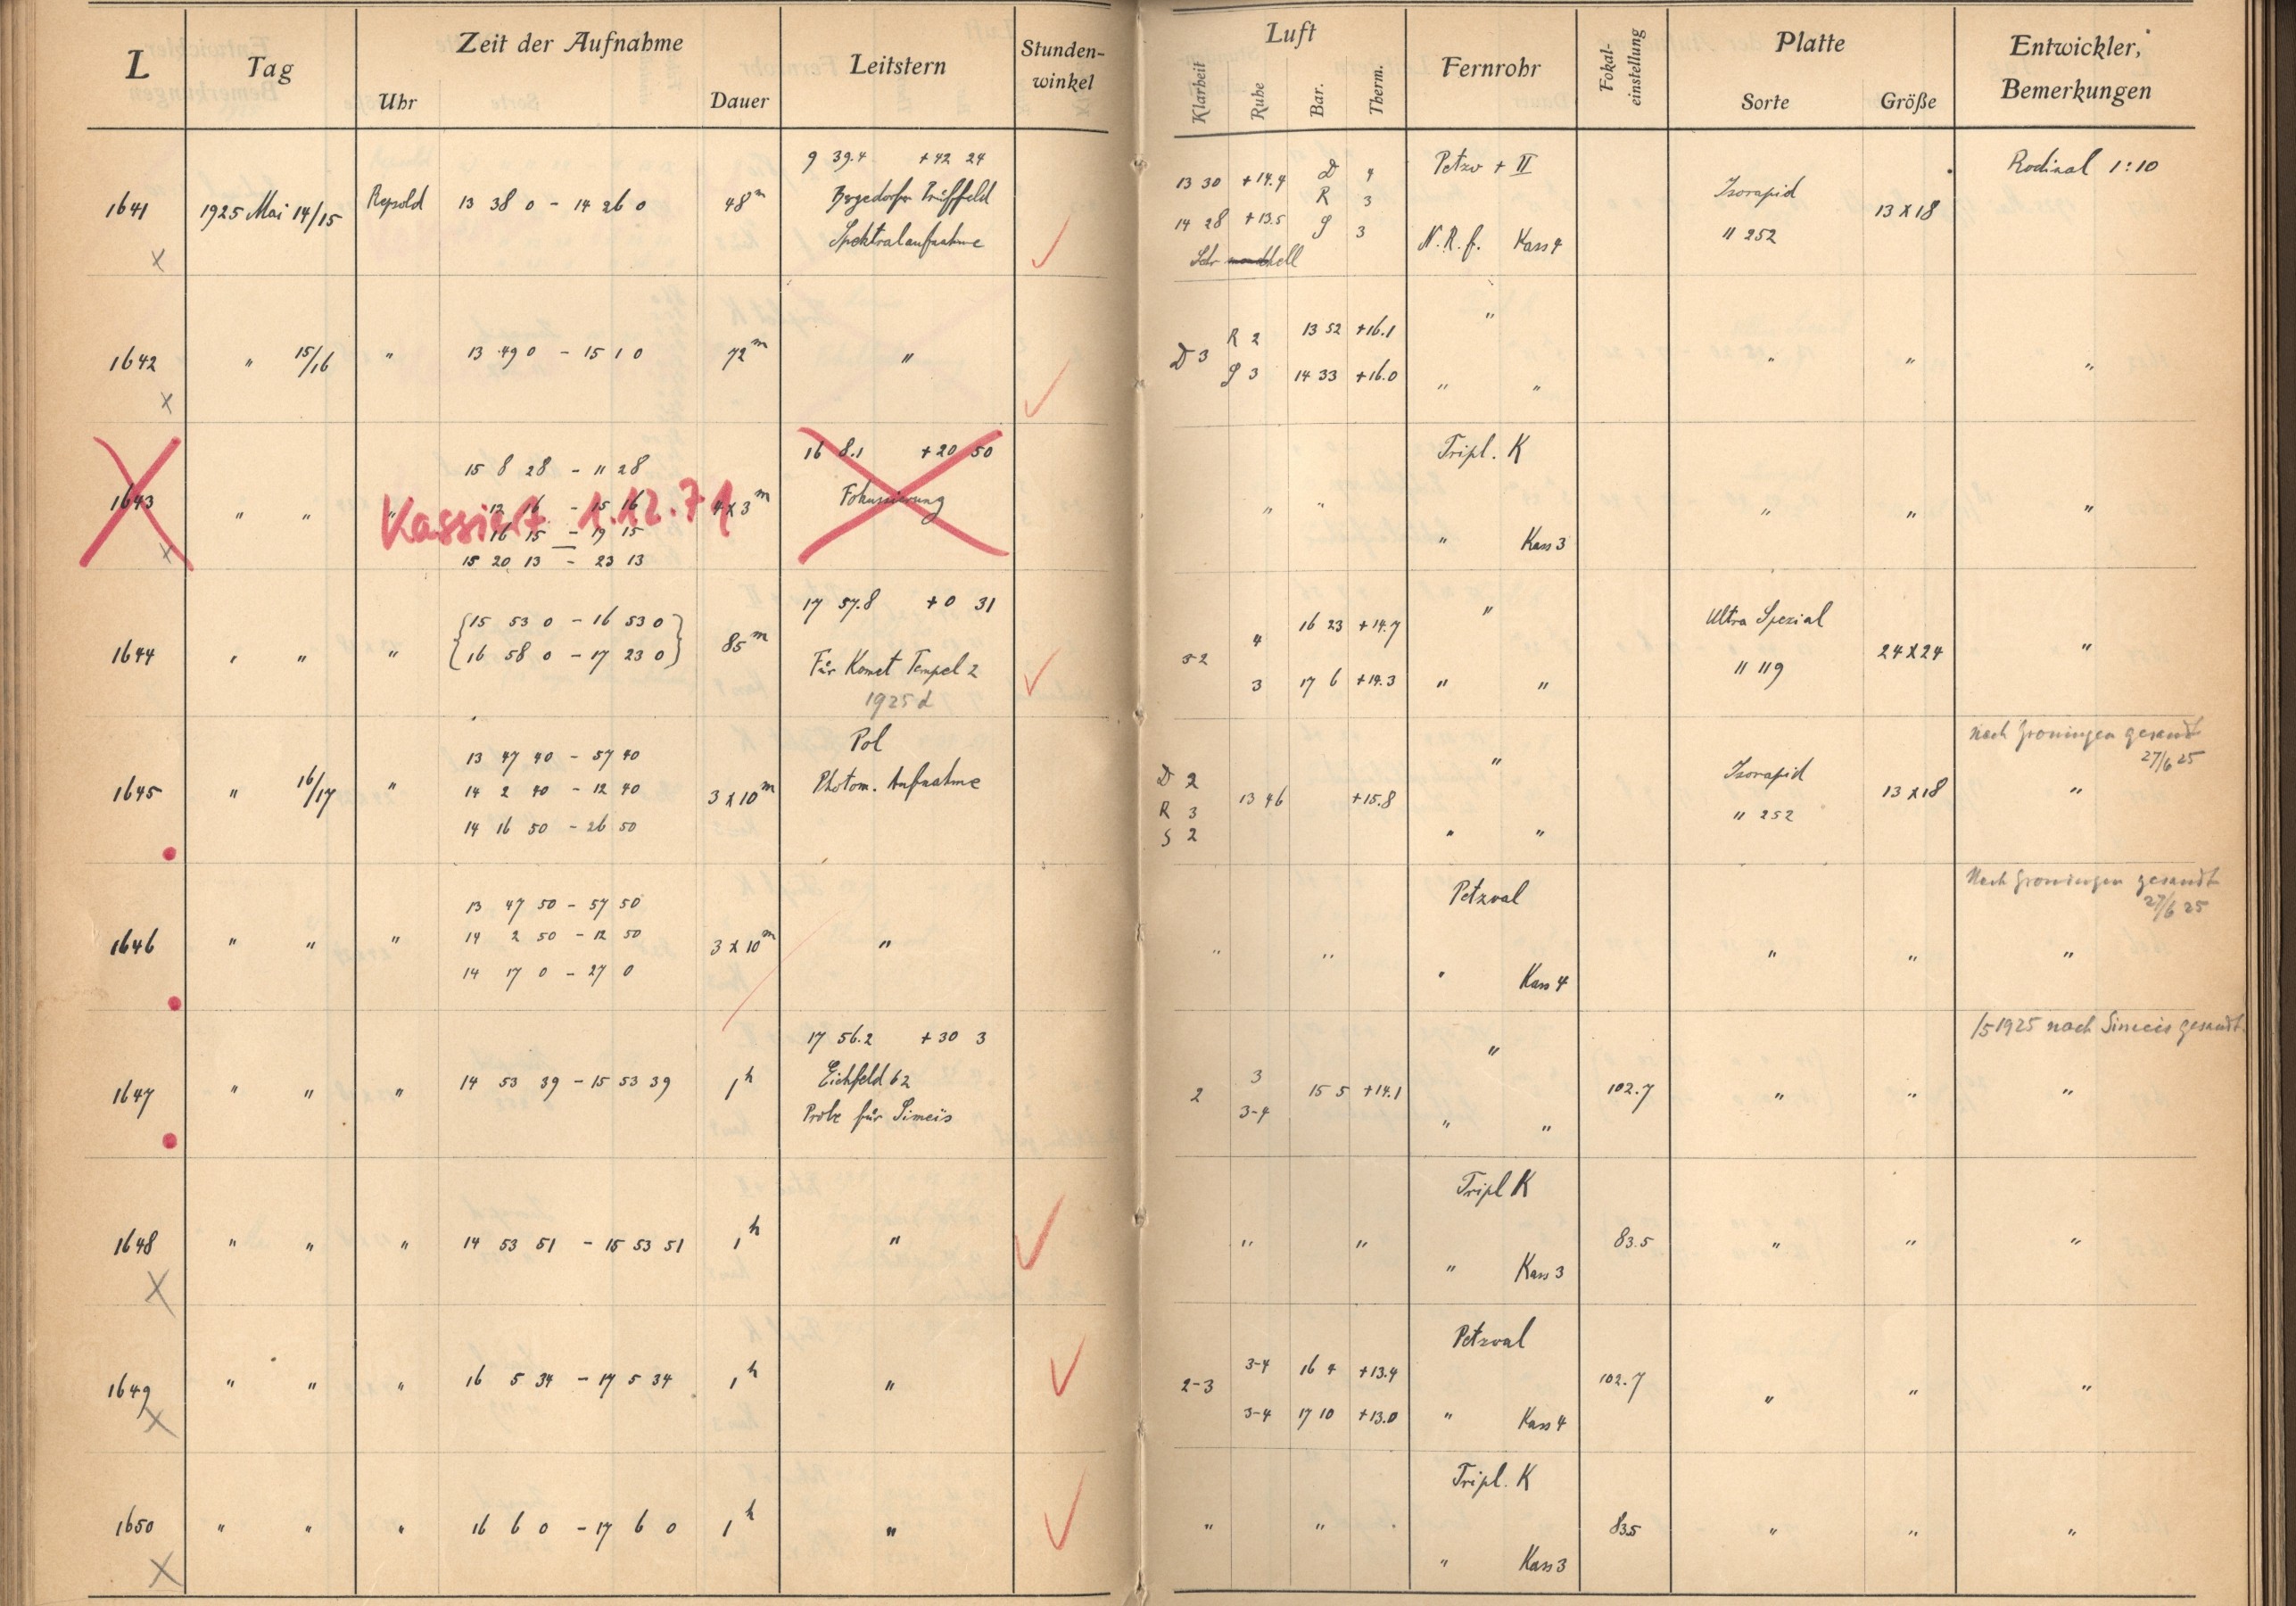 L
Tag
Zeit der Aufnahme
Uhr
Dauer
Leitstern
Stunden-
winkel
Luft
Klarheit
Ruhe
Bar.
Therm.
Fernrohr
Fokal-
einstellung
Platte
Sorte
Größe
Entwickler,
Bemerkungen
1641 1925 Mai 14/15 Repsold 13 38 0 - 14 26 0 48m
x
9 39.4 +42 24
Bergedorfer Prüffeld
Spektralaufnahme
13 30 +14.4 D 4
R 3
14 28 +13.5 S 3
Sehr hell
Petzv + II
N. R. f. Kass 4
Isorapid
11 252
13 x 18
Rodinal 1:10
1642 " 15/16 " 13 49 0 - 15 1 0 72m "
x
D 3
R 2 13 52 +16.1
S 3 14 33 +16.0
"
" "
" " "
1643 " " "
x
15 8 28 - 11 28
12 16 - 15 16
16 15 - 19 15
15 20 13 - 23 13
4 x 3m
Kassiert 1.12.71
16 8.1 +20 50
Fokussierung
" "
Tripl. K
" Kass 3
" " "
1644 " " "
{15 53 0 - 16 53 0}
{16 58 0 - 17 23 0}
85m
17 57.8 +0 31
Für Komet Tempel 2
1925 d
2
4 16 23 +14.7
3 17 6 +14.3
"
" "
Ultra Spezial
11 119
24 x 24
"
1645 " 16/17 "
13 47 40 - 57 40
14 2 40 - 12 40
14 16 50 - 26 50
3 x 10m
Pol
Photom. Aufnahme
D 2
R 3
S 2
13 46 +15.8
"
" "
Isorapid
11 252
13 x 18
nach Groningen gesandt
27/6 25
"
1646 " " "
13 47 50 - 57 50
14 2 50 - 12 50
14 17 0 - 27 0
3 x 10m
"
" "
Petzval
" Kass 4
" "
Nach Groningen gesandt
27/6 25
"
1647 " " " 14 53 39 - 15 53 39 1h
17 56.2 +30 3
Eichfeld 62
Probe für Simeis
2
3
3-4
15 5 +14.1
"
" "
102.7
" "
/5 1925 nach Simeis gesandt.
"
1648 " " " 14 53 51 - 15 53 51 1h "
x
" "
Tripl K
" Kass 3
83.5
" " "
1649 " " " 16 5 34 - 17 5 34 1h "
x
2-3
3-4 16 4 +13.4
3-4 17 10 +13.0
Petzval
" Kass 4
102.7
" " "
1650 " " " 16 6 0 - 17 6 0 1h "
x
" "
Tripl. K
" Kass 3
83.5
" " "